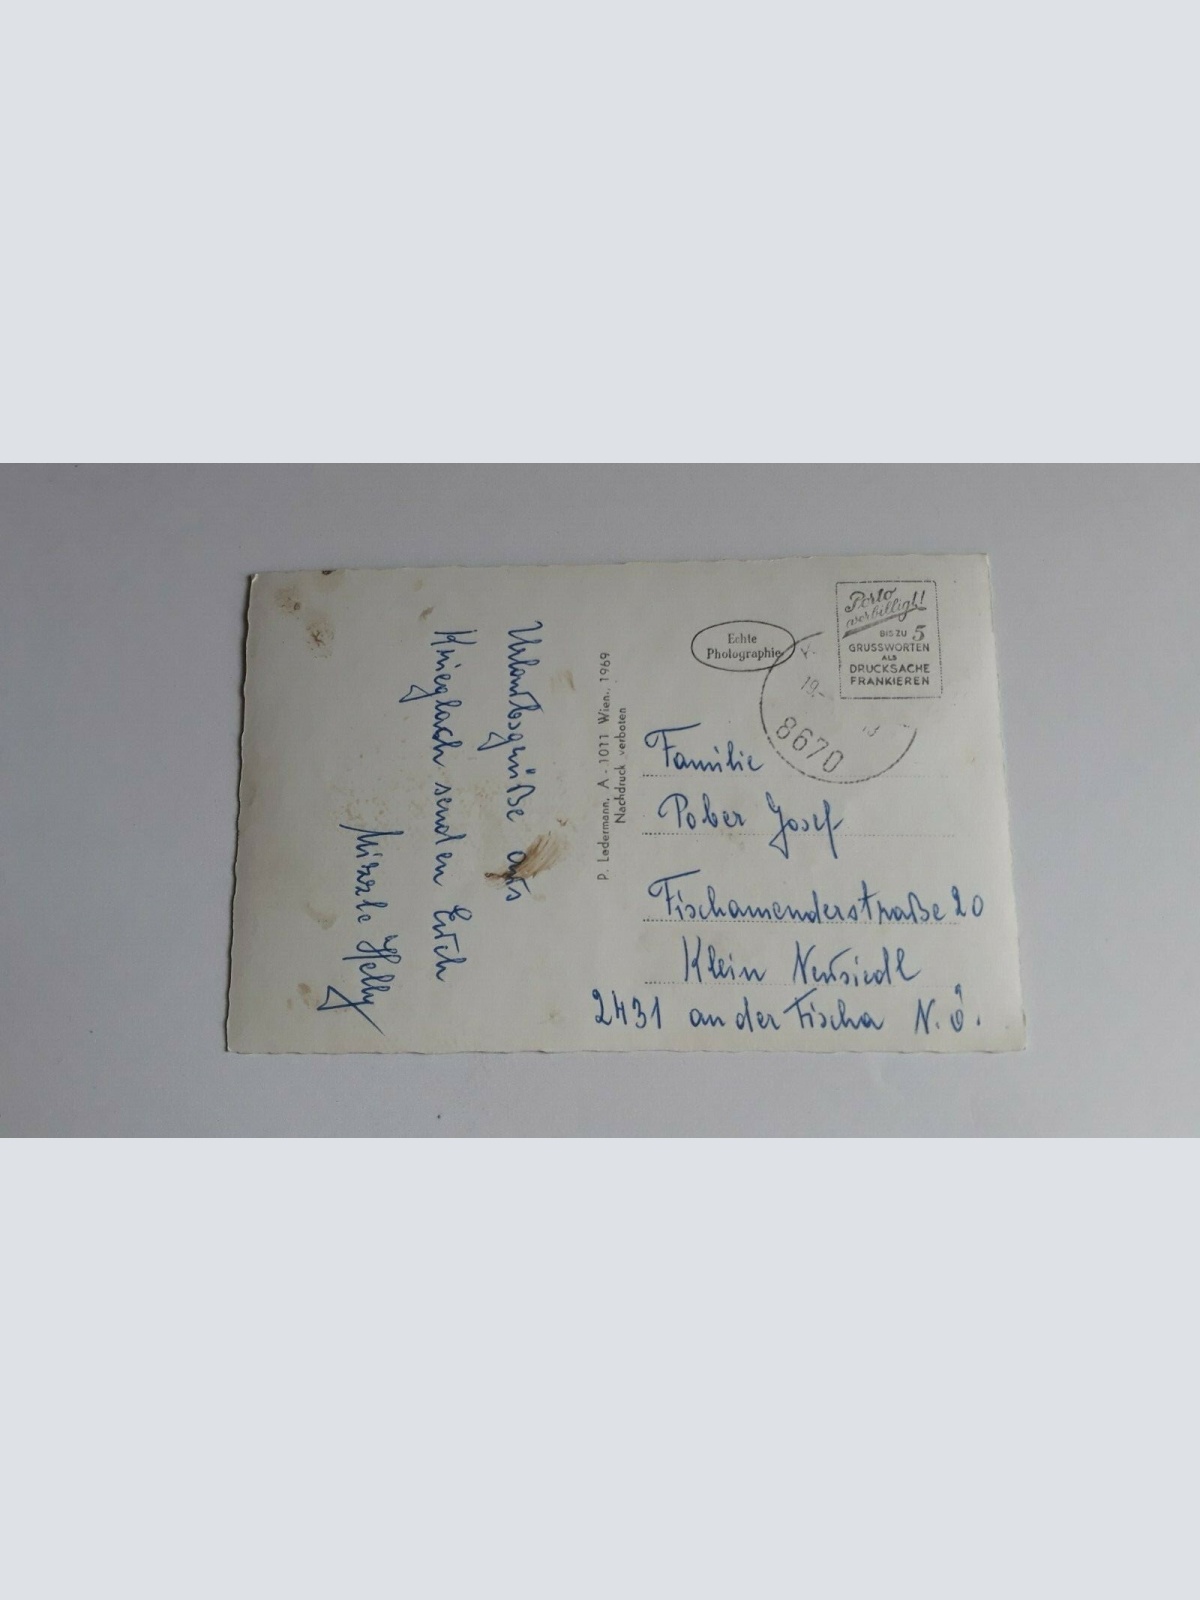 Urlaubsgrüße aus
Krieglach senden Euch
Mizzle Helly
P. Ledermann, A - 1011 Wien., 1969
Nachdruck verboten
Echte
Photographie
Porto
verbilligt!
BIS ZU 5
GRUSSWORTEN
ALS
DRUCKSACHE
FRANKIEREN
19.-
8670
Familie
Pober Josef
Fischamenderstraße 20
Klein Neusiedl
2431 an der Fischa N.Ö.